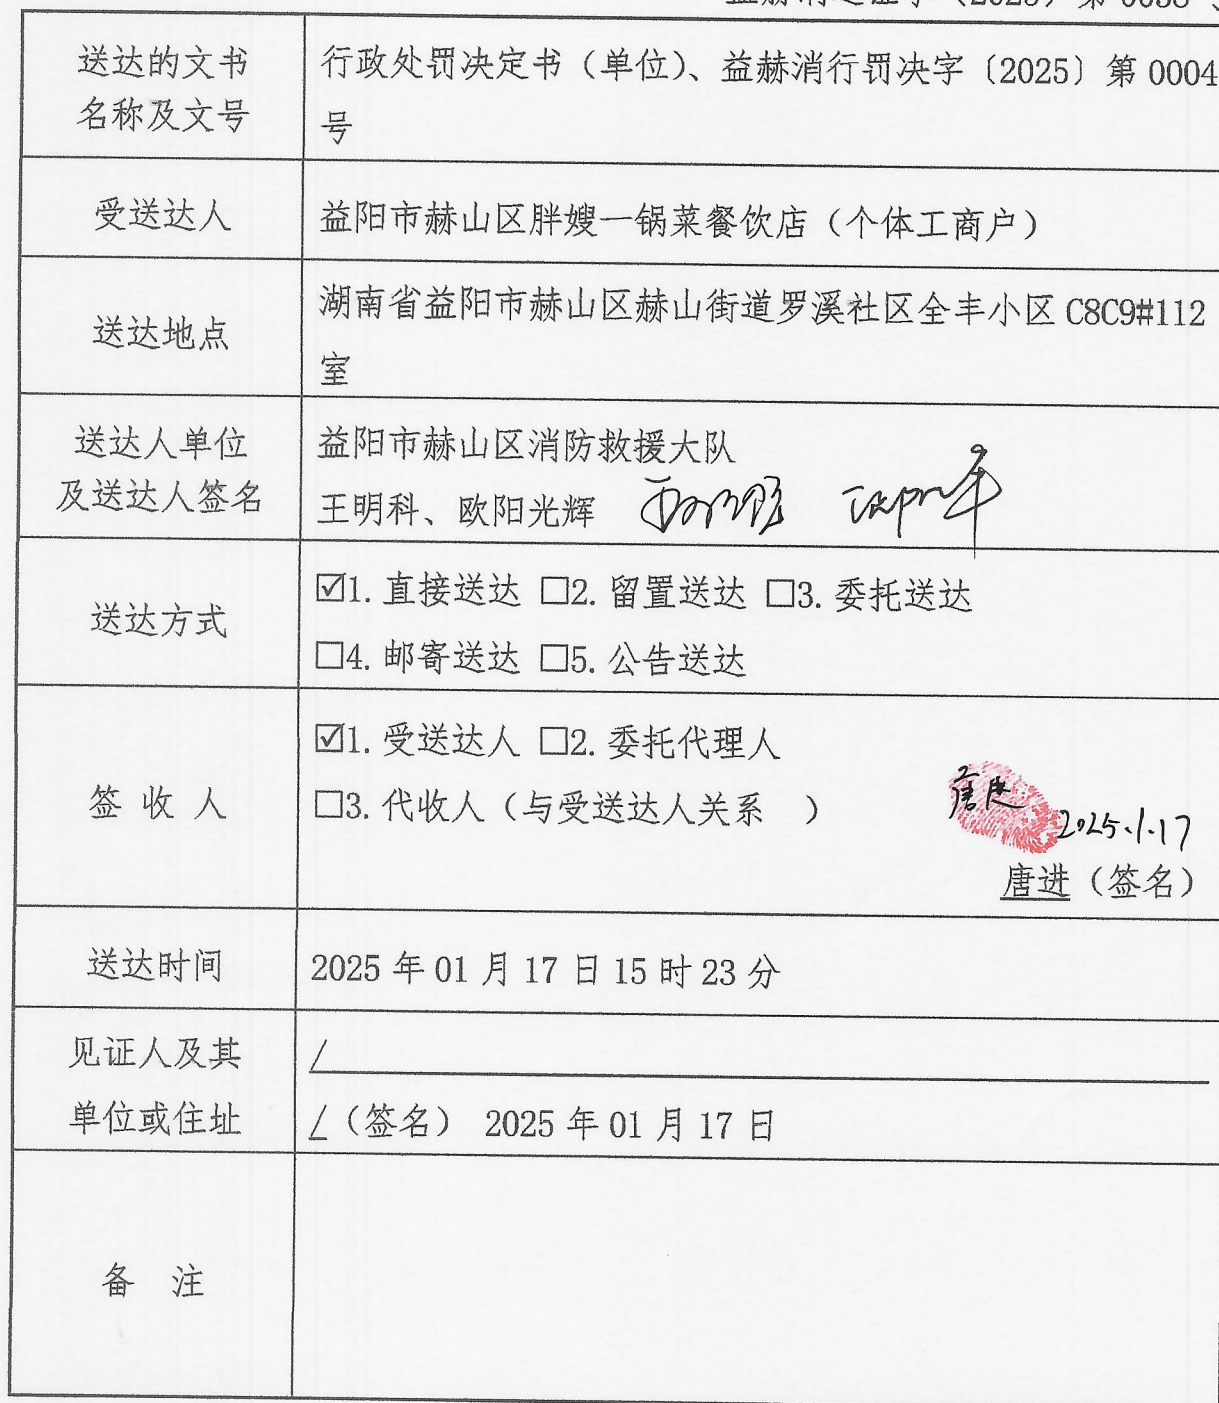 送达的文书
名称及文号
行政处罚决定书（单位）、益赫消行罚决字〔2025〕第 0004
号
受送达人
益阳市赫山区胖嫂一锅菜餐饮店（个体工商户）
送达地点
湖南省益阳市赫山区赫山街道罗溪社区全丰小区 C8C9#112
室
送达人单位
及送达人签名
益阳市赫山区消防救援大队
王明科、欧阳光辉
送达方式
☑1. 直接送达 □2. 留置送达 □3. 委托送达
□4. 邮寄送达 □5. 公告送达
签 收 人
☑1. 受送达人 □2. 委托代理人
□3. 代收人（与受送达人关系 ）
唐进
2025.1.17
唐进（签名）
送达时间
2025 年 01 月 17 日 15 时 23 分
见证人及其
单位或住址
/
/（签名） 2025 年 01 月 17 日
备 注